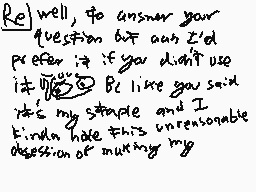 Re well, to answer your
question but aun I'd
prefer it if you didn't use
it Bc like you said
it's my staple and I
kinda hate this unreasonable
obsession of making my